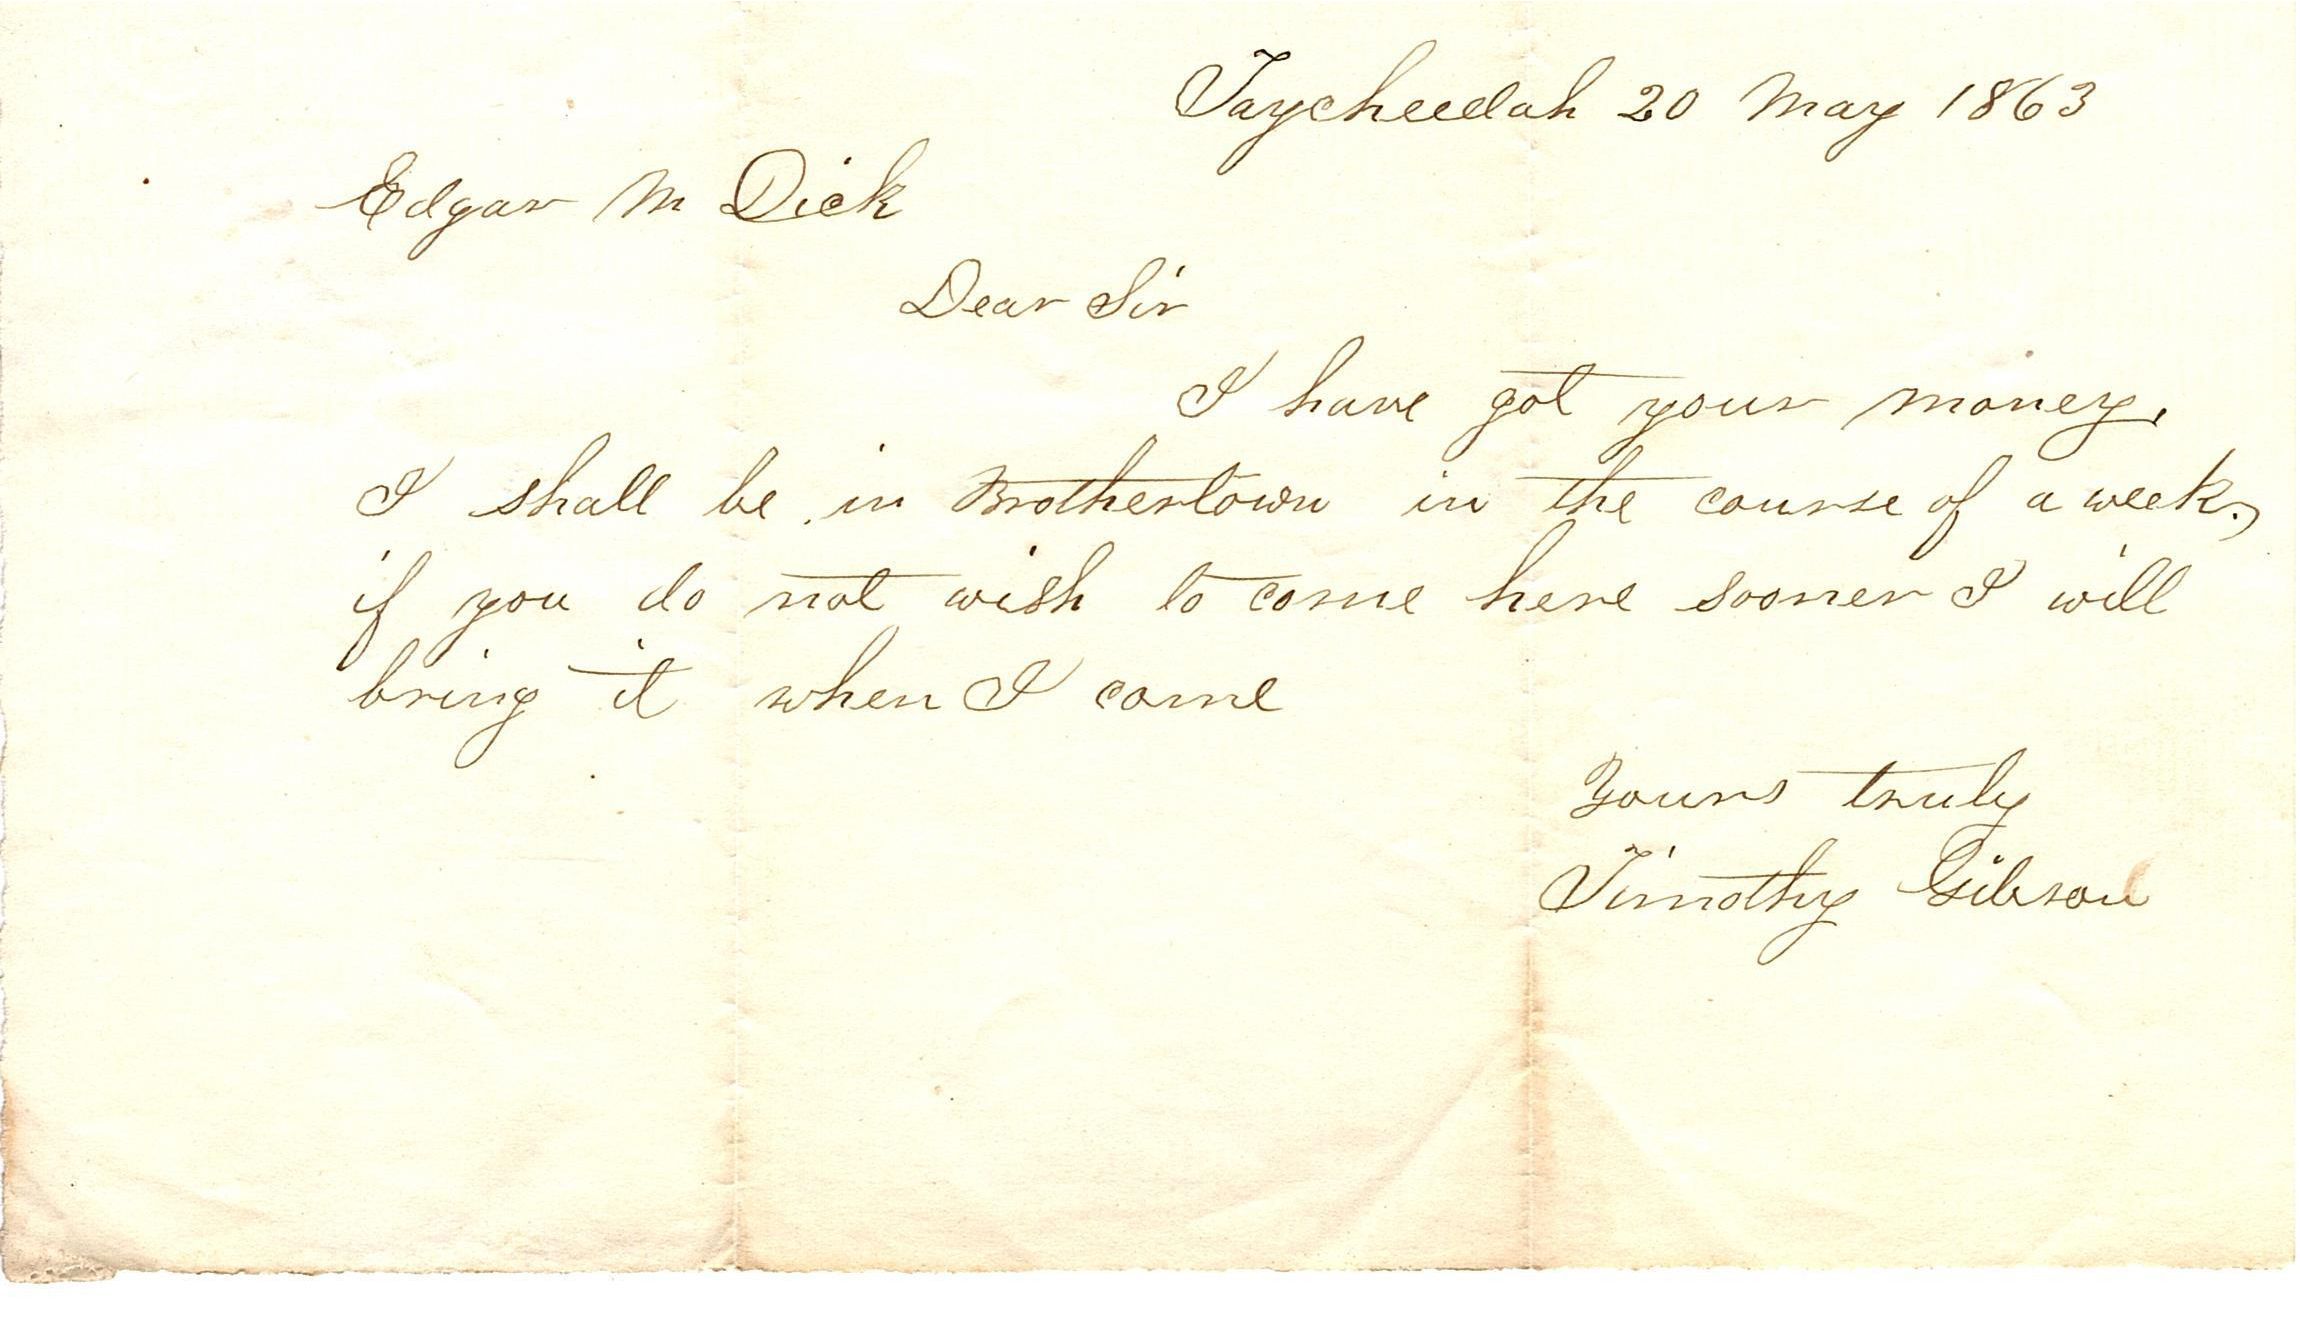 Taycheedah 20 May 1863
Edgar M Dick
Dear Sir
I have got your money.
I shall be in Brothertown in the course of a week,
if you do not wish to come here sooner I will
bring it when I come
Yours truly
Timothy Gibson